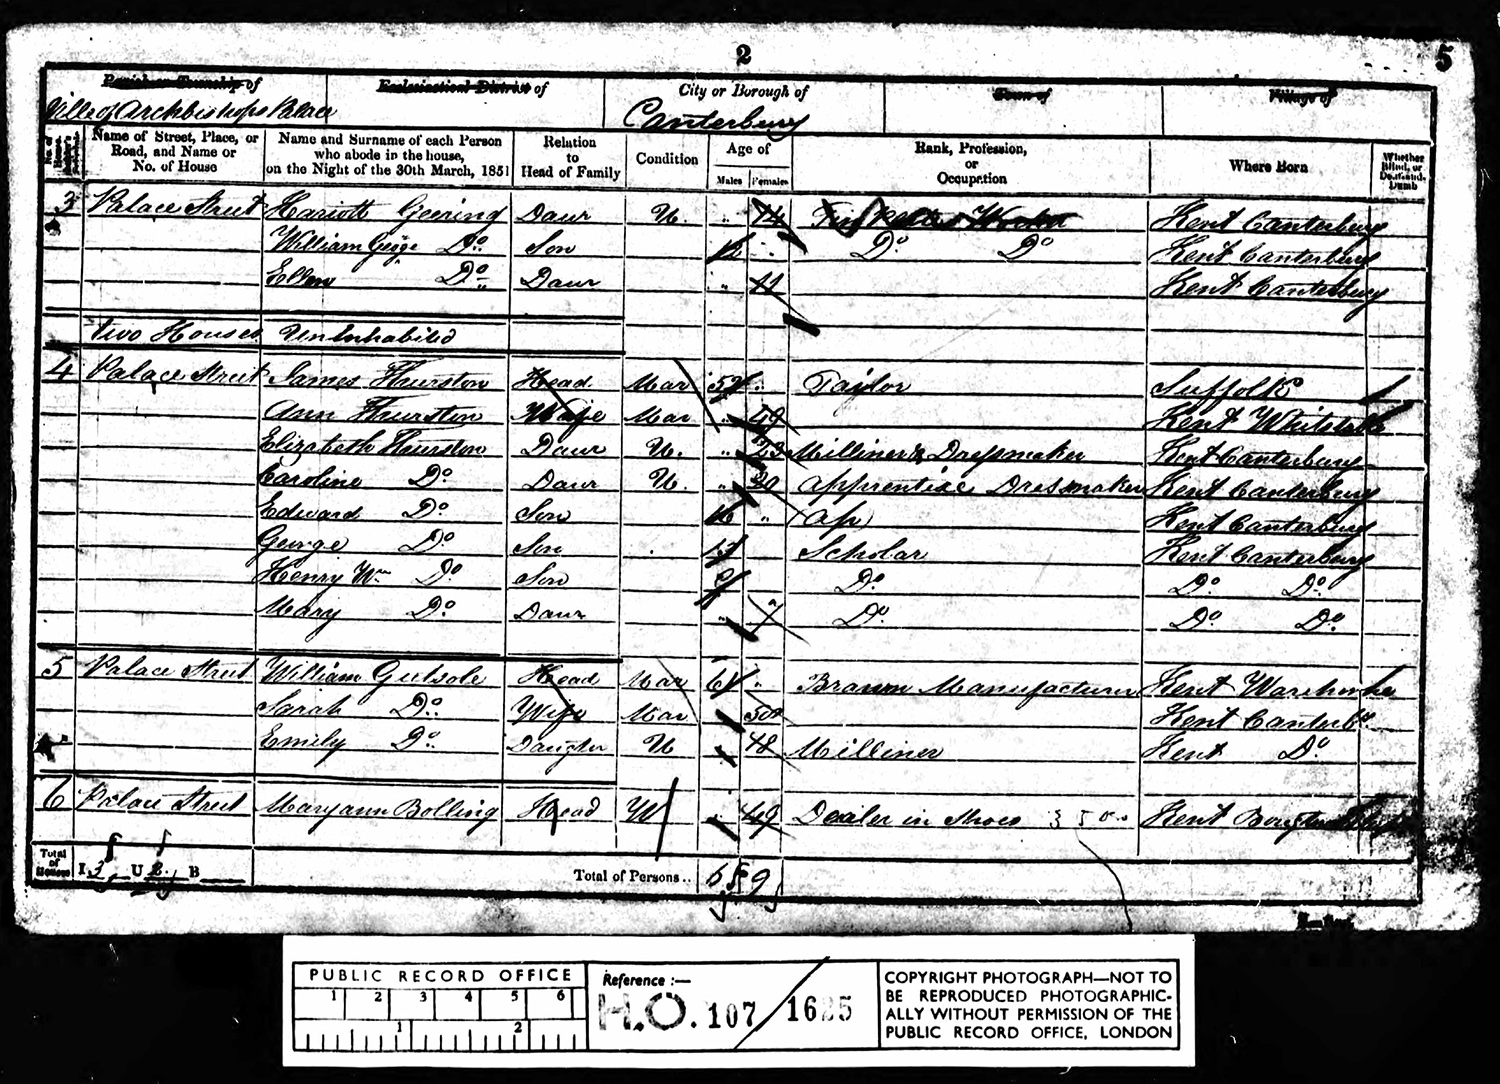 2
5
Parish or Township of Ecclesiastical District of City or Borough of Town of Village of
Ville of Archbishops Palace Canterbury
Name of Street, Place, or Road, and Name or No. of House Name and Surname of each Person who abode in the house, on the Night of the 30th March, 1851 Relation to Head of Family Condition Age of Males Females Rank, Profession, or Occupation Where Born Whether Blind, or Deaf-and-Dumb
3 Palace Street Hariott Geering Daur U. 14 Kent Canterbury
William George Do Son 12 Do Do Kent Canterbury
Ellen Do Daur 11 Kent Canterbury
two Houses UnInhabited
4 Palace Street James Thurston Head Mar 52 Taylor Suffolk
Ann Thurston Wife Mar 49 Kent Whitstable
Elizabeth Thurston Daur U. 23 Milliner & Dressmaker Kent Canterbury
Caroline Do Daur U. 20 Apprentice Dressmaker Kent Canterbury
Edward Do Son 16 Ap Kent Canterbury
George Do Son 13 Scholar Kent Canterbury
Henry Wm Do Son Do Do Do
Mary Do Daur Do Do Do
5 Palace Street William Gutsole Head Mar 61 Manufacturer Kent
Sarah Do Wife Mar 50 Kent Canterby
Emily Do Daughter U 18 Milliner Kent Do
6 Palace Street Maryann Bolling Head W 49 Dealer in Shoes Kent
Total of Houses I 3 U 2 B Total of Persons.. 9
PUBLIC RECORD OFFICE
1 2 3 4 5 6
1 2
Reference :—
H.O. 107/1625
COPYRIGHT PHOTOGRAPH—NOT TO
BE REPRODUCED PHOTOGRAPHIC-
ALLY WITHOUT PERMISSION OF THE
PUBLIC RECORD OFFICE, LONDON